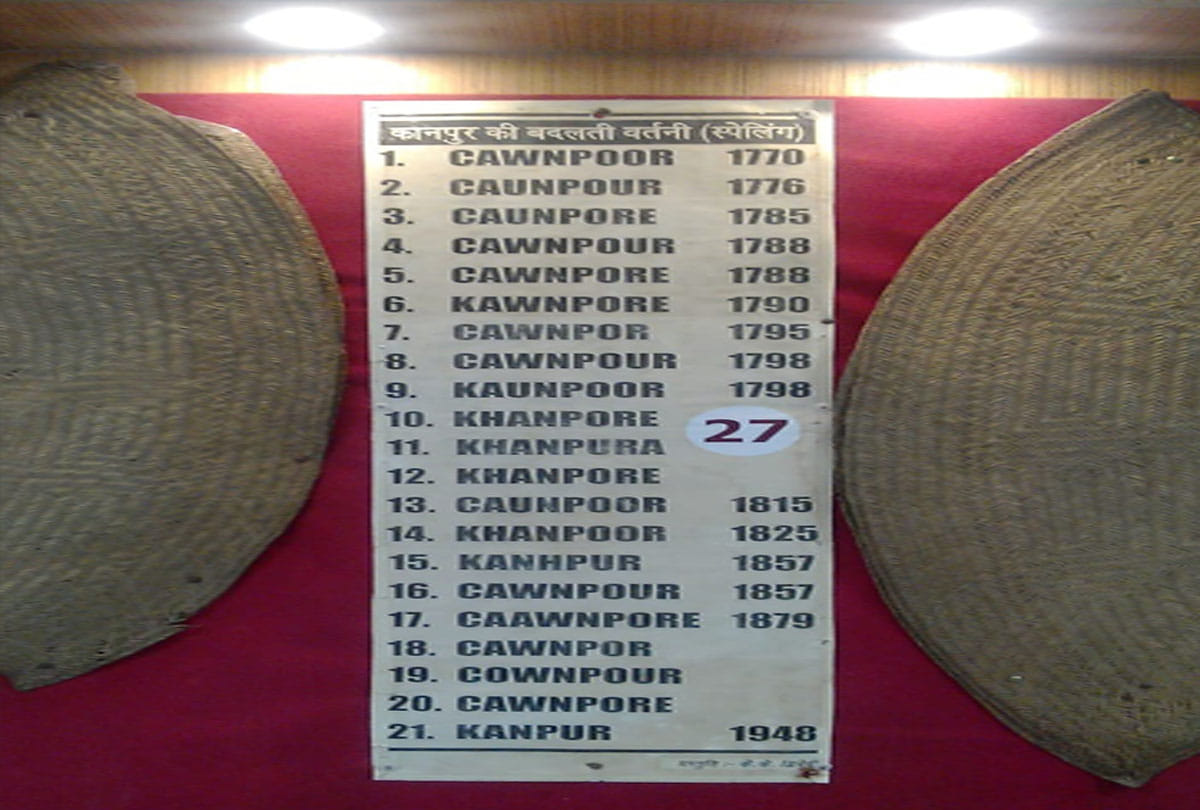 कानपुर की बदलती वर्तनी (स्पेलिंग)
1. CAWNPOOR 1770
2. CAUNPOUR 1776
3. CAUNPORE 1785
4. CAWNPOUR 1788
5. CAWNPORE 1788
6. KAWNPORE 1790
7. CAWNPOR 1795
8. CAWNPOUR 1798
9. KAUNPOOR 1798
10. KHANPORE
27
11. KHANPURA
12. KHANPORE
13. CAUNPOOR 1815
14. KHANPOOR 1825
15. KANHPUR 1857
16. CAWNPOUR 1857
17. CAAWNPORE 1879
18. CAWNPOR
19. COWNPOUR
20. CAWNPORE
21. KANPUR 1948
प्रस्तुति :-